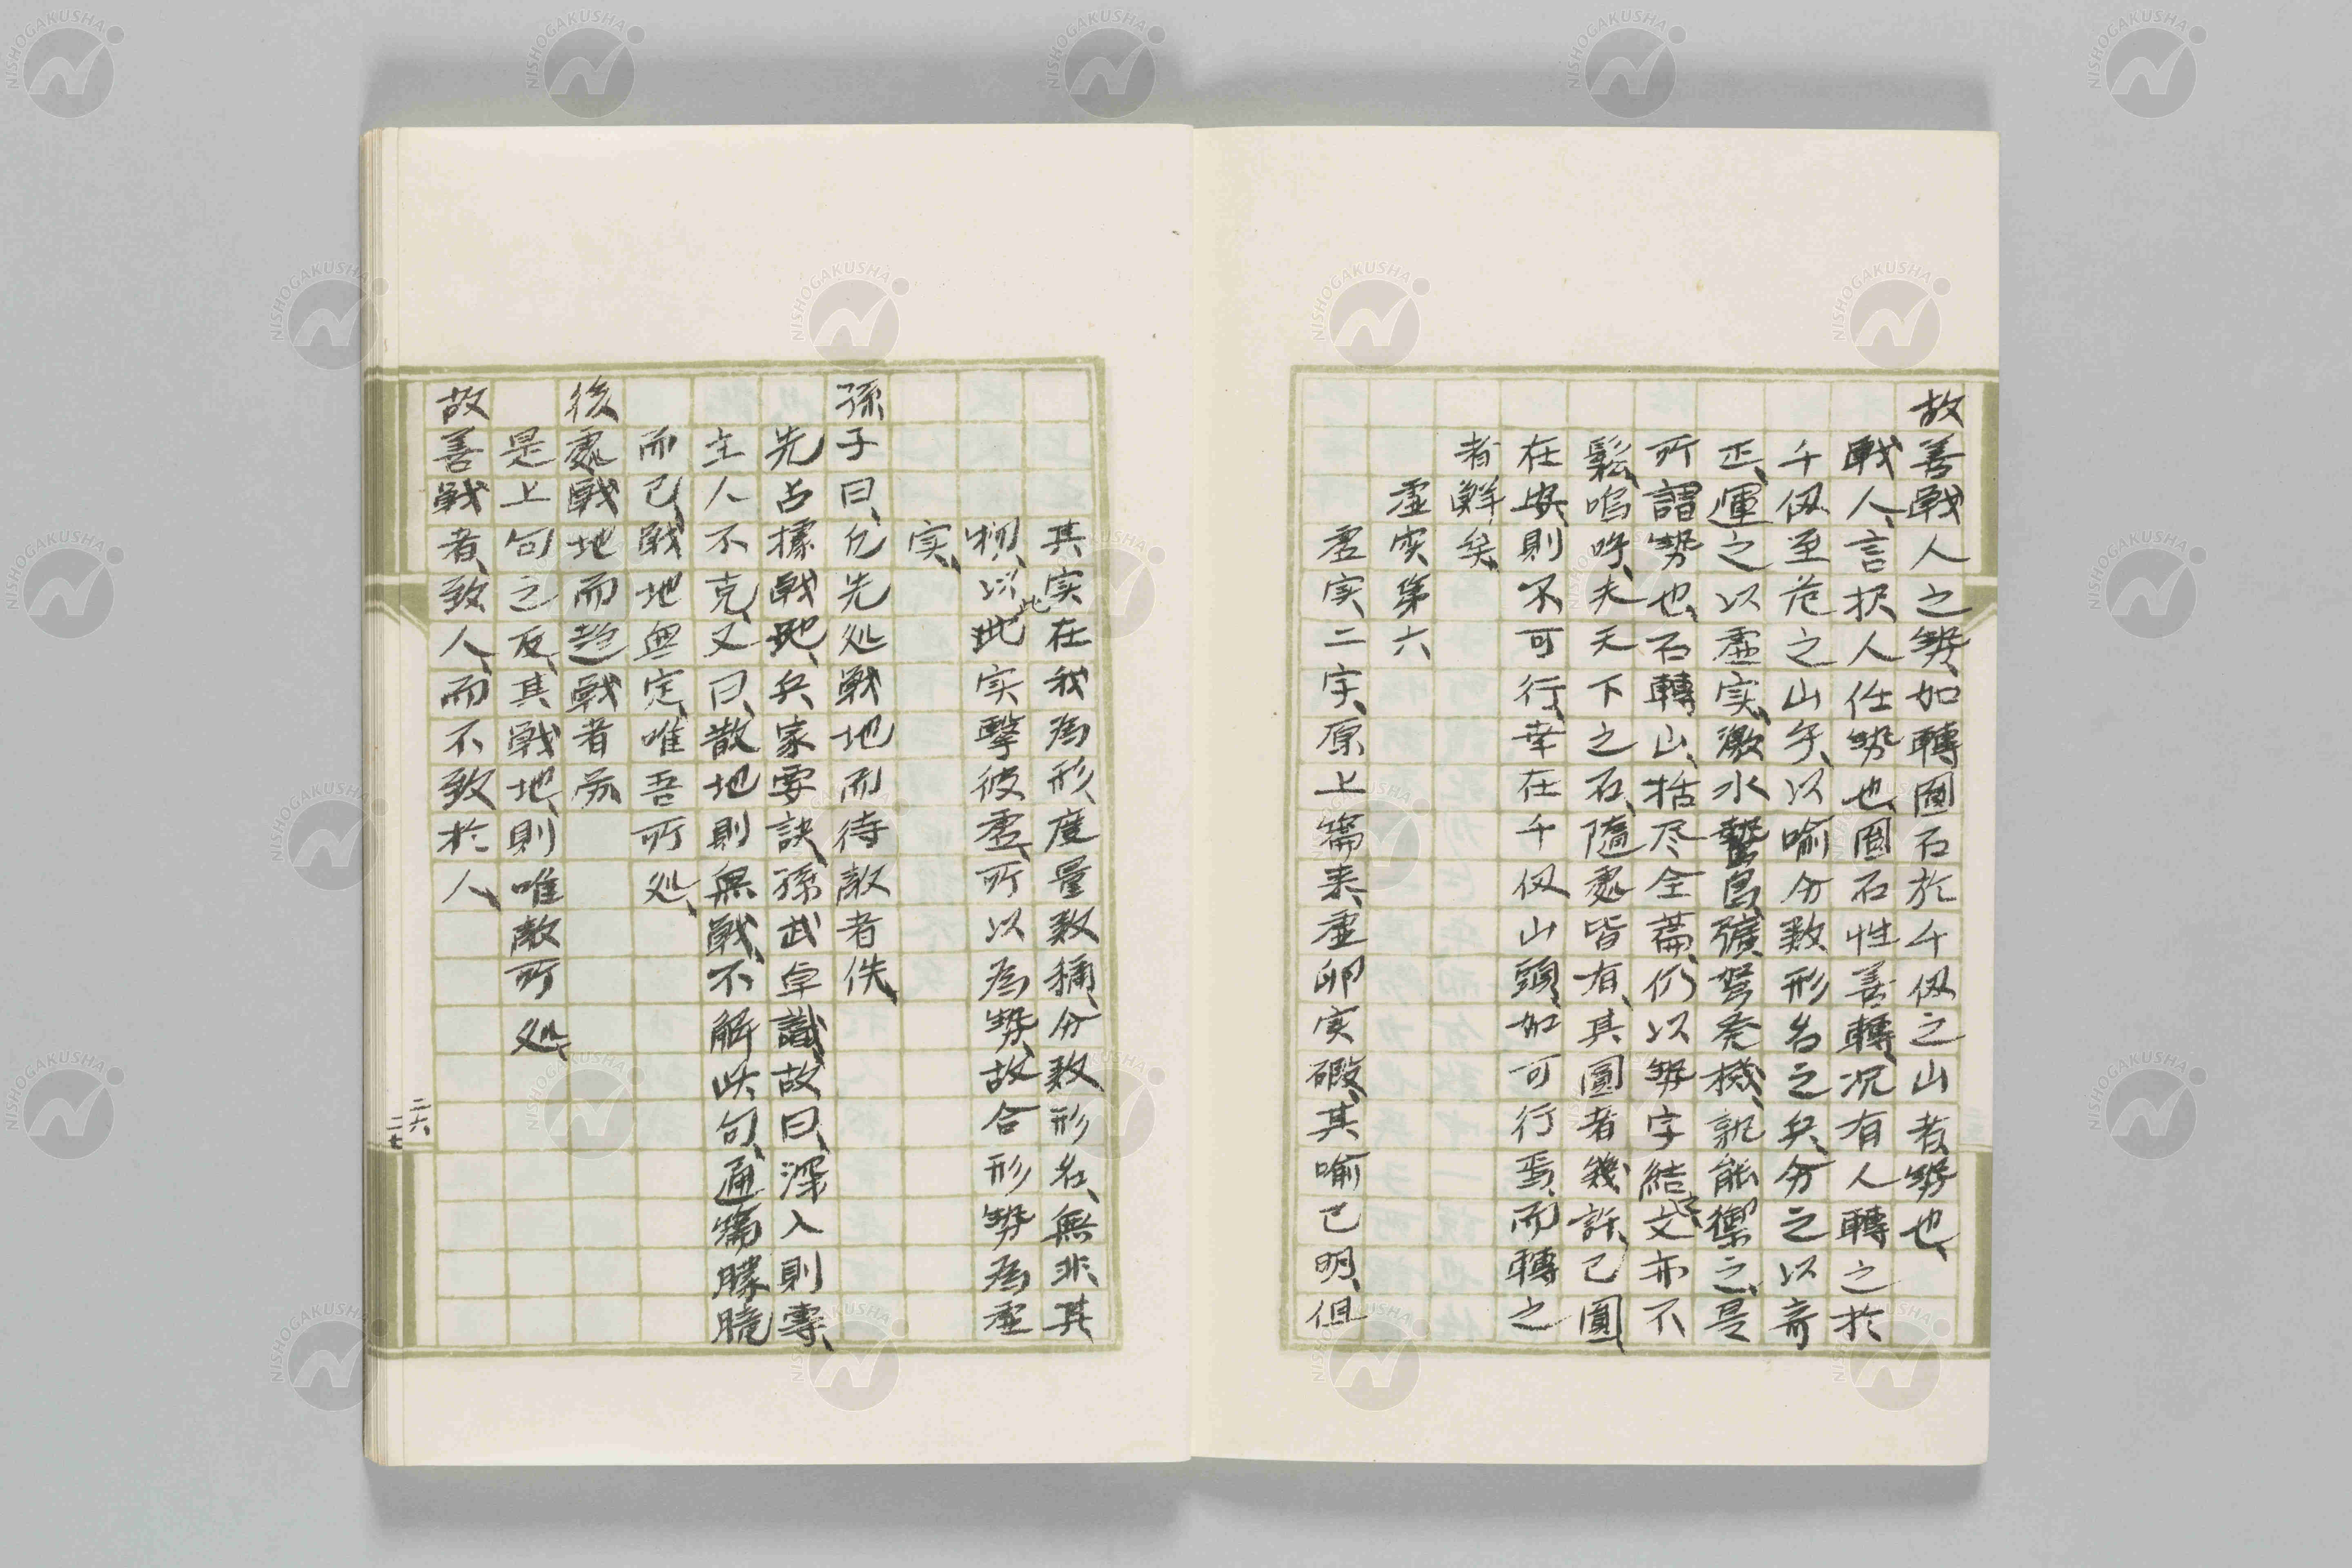 故善戦人之勢、如轉圎石於千仭之山者勢也、
戦人、言択人任勢也、圎石性善轉、况有人轉之於
千仭至危之山乎、以喻分数形名之兵、分之以奇
正、運之以虚実、激水鷙鳥、彍弩発機、孰能禦之、是
所謂勢也、石轉山、括尽全篇、仍以勢字結文亦不
鬆、嗚呼、夫天下之石、随處皆有、其圓者幾許、已圓
在典、則不可行、幸在千仭山頭、如可行焉、而轉之
者鮮矣、
虚実第六
虚実二字、原上篇来、虚卵実碬、其喻已明、但
其実在我為形、度量数稱、分数形名、無非其
物、以此実擊彼虚、所以為勢、故合形勢為虚
実、
孫子曰、凢先处戦地而待敵者佚、
先占據戦地、兵家要訣、孫武卓識、故曰、深入則專、
主人不克、又曰、散地則無戦、不解此句、通篇朦朧
而已、戦地無定、唯吾所处、
後處戦地而趋戦者労
是上句之反、其戦地、則唯敵所处、
故善戦者、致人、而不致於人、
二六
二七
NISHOGAKUSHA